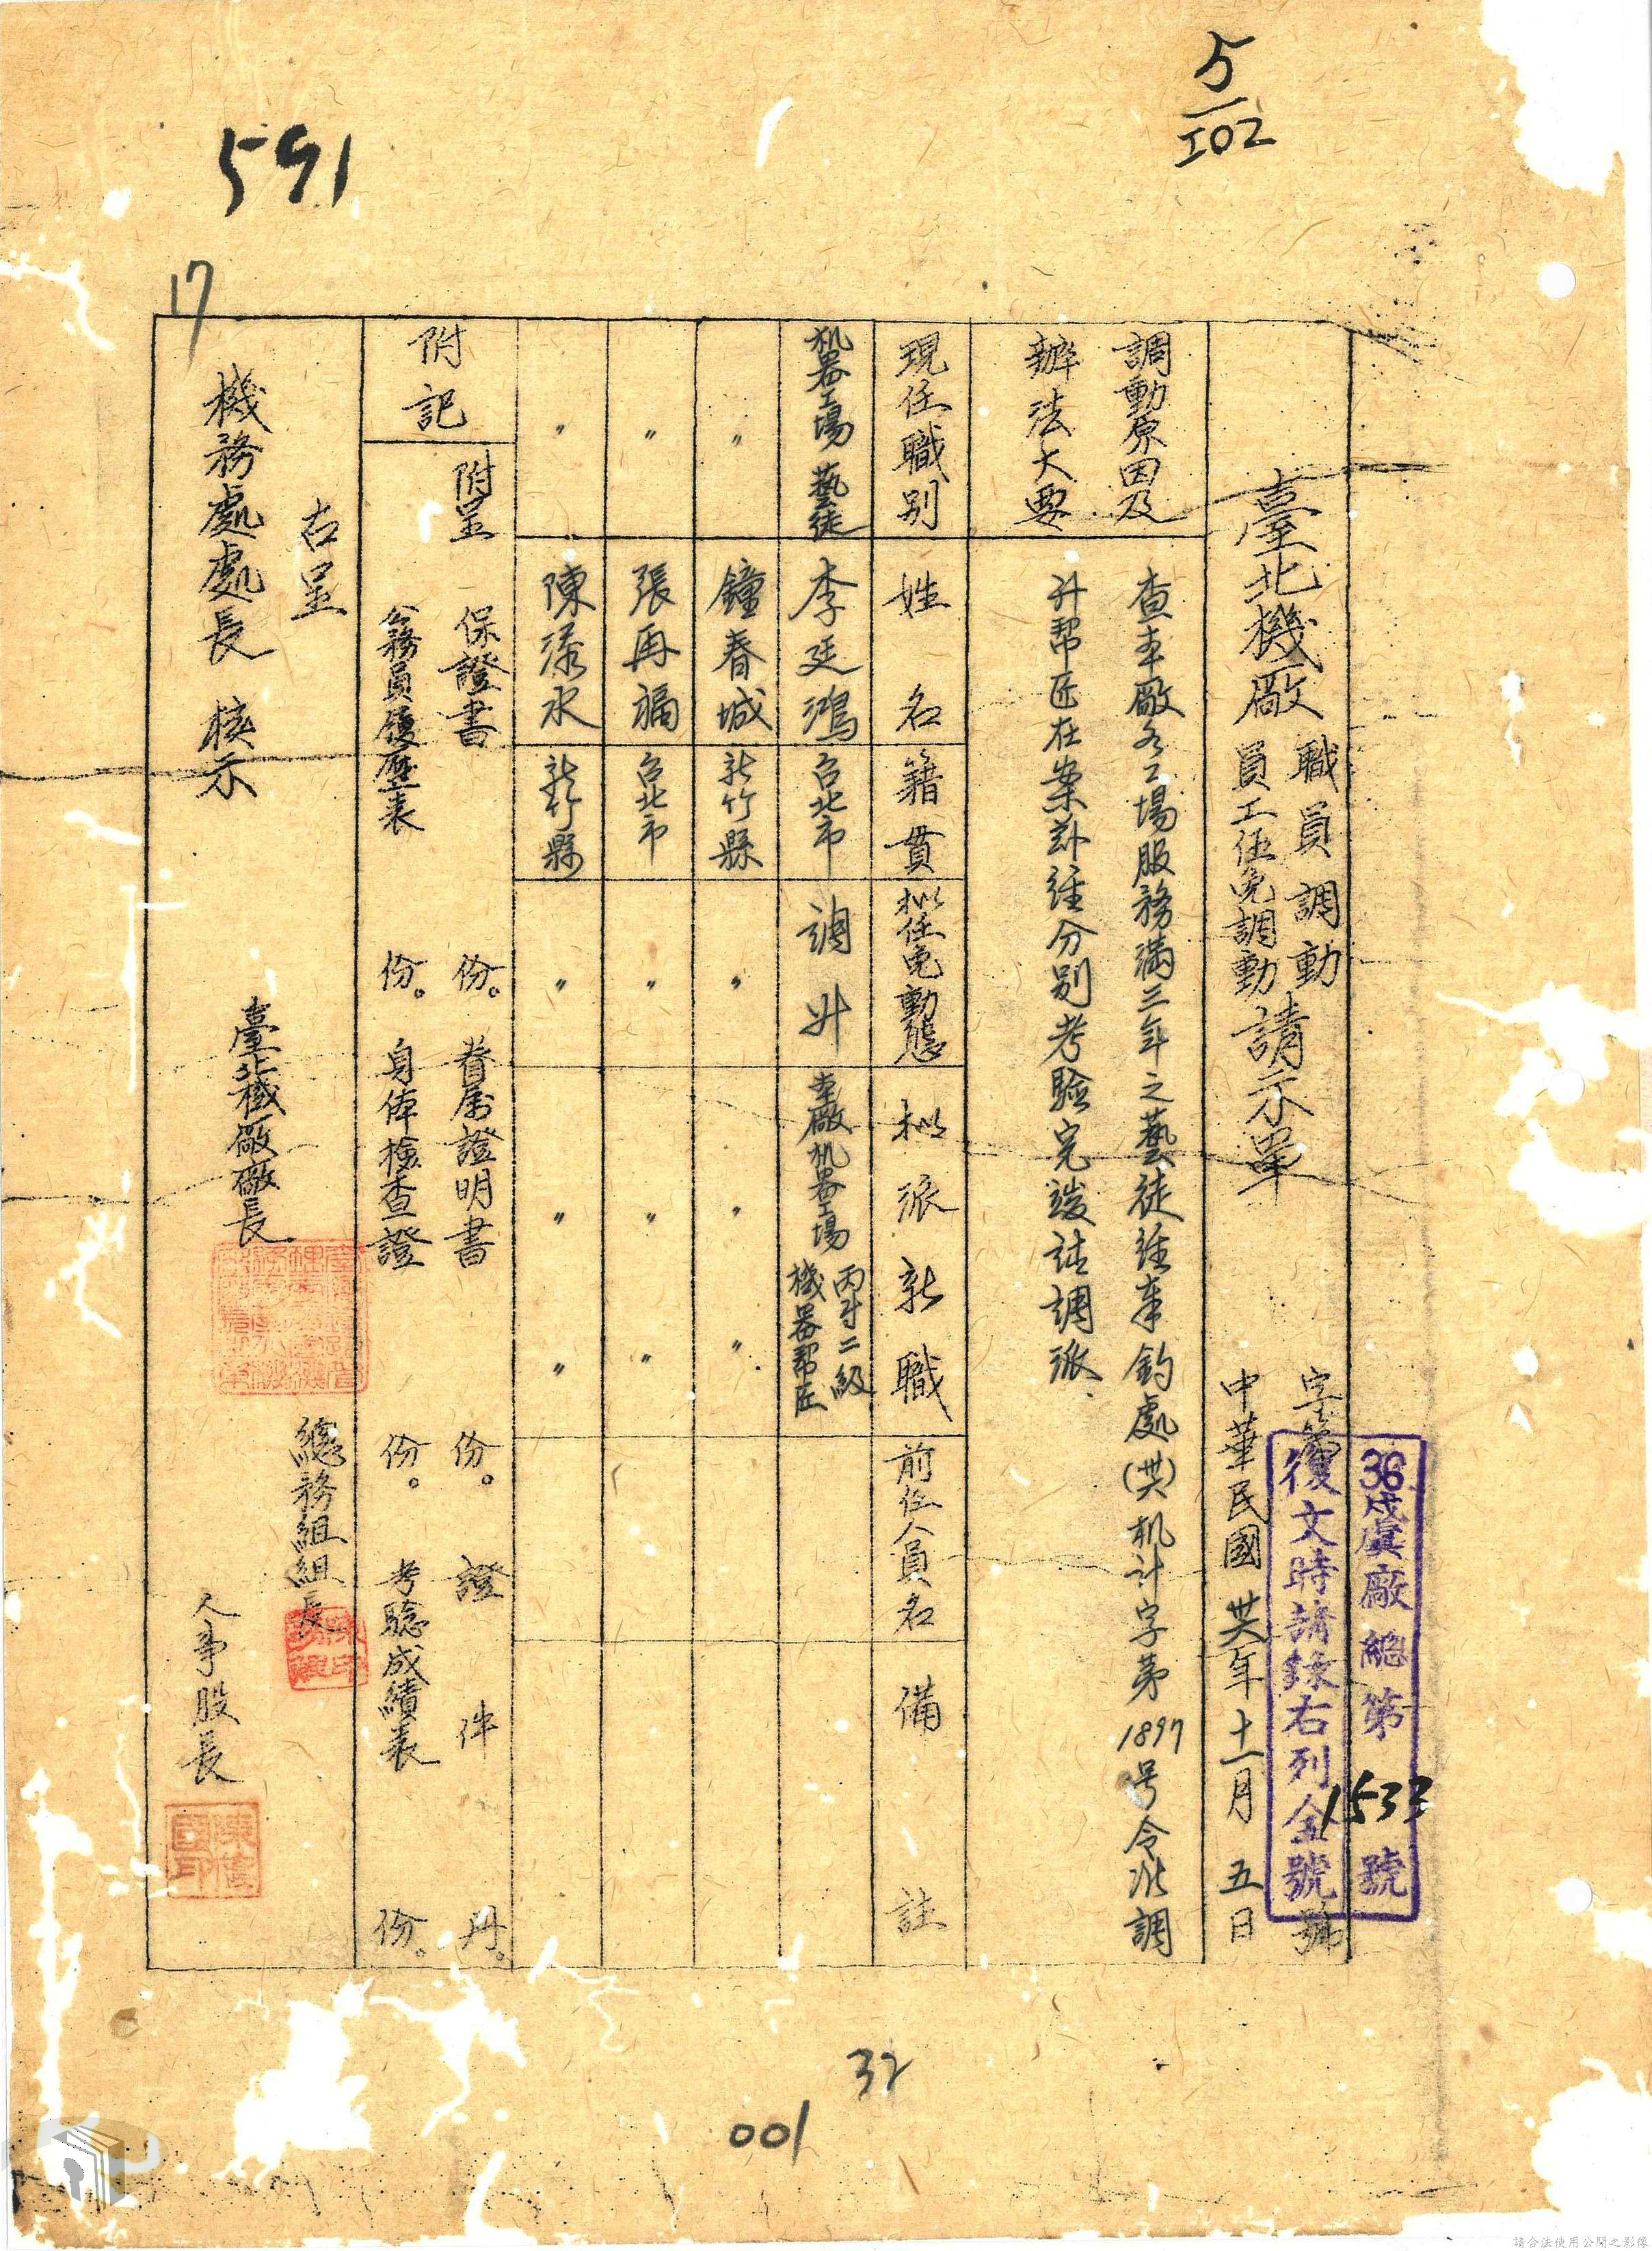 5/102
591
17
36戌虞廠總第1533號
復文時請錄右列全號
字第 號
臺北機廠職員調動員工任免調動請示單
中華民國卅六年十一月五日
調動原因及辦法大要
查本廠各工場服務滿三年之藝徒經奉鈞處(卅六)机計字第1897号令准調
升幫匠在案茲經分別考驗完竣請調派.
現任職別 姓名 籍貫 拟任免動態 拟派新職 前任人員名 備註
机器工場藝徒 李廷鴻 台北市 調升 本廠机器工場 丙等二級機器幫匠
〃 鐘春城 新竹縣 〃 〃 〃
〃 張再福 台北市 〃 〃 〃
〃 陳添水 新竹縣 〃 〃 〃
附記
附呈 保證書 份。眷屬證明書 份。證件 冊。
公務員履歷表 份。身体檢查證 份。考驗成績表 份。
右呈
機務處處長 核示
臺北機廠廠長
總務組組長
人事股長
32
001
請合法使用公開之影像